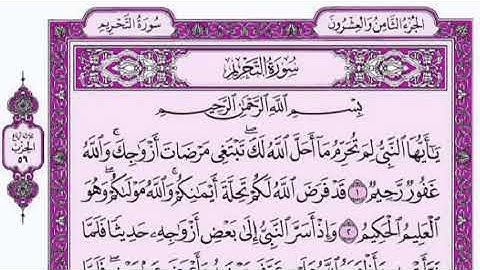 الجزء الثامن والعشرون
سورة التحريم
سُورَةُ التَّحْرِيمِ
بِسْمِ اللَّهِ الرَّحْمَٰنِ الرَّحِيمِ
يَٰٓأَيُّهَا النَّبِيُّ لِمَ تُحَرِّمُ مَآ أَحَلَّ اللَّهُ لَكَ تَبْتَغِي مَرْضَاتَ أَزْوَٰجِكَ وَاللَّهُ
غَفُورٌ رَّحِيمٌ ١ قَدْ فَرَضَ اللَّهُ لَكُمْ تَحِلَّةَ أَيْمَٰنِكُمْ وَاللَّهُ مَوْلَىٰكُمْ وَهُوَ
الْعَلِيمُ الْحَكِيمُ ٢ وَإِذْ أَسَرَّ النَّبِيُّ إِلَىٰ بَعْضِ أَزْوَٰجِهِ حَدِيثًا فَلَمَّا
ثلاثة أرباع
الحزب
٥٦